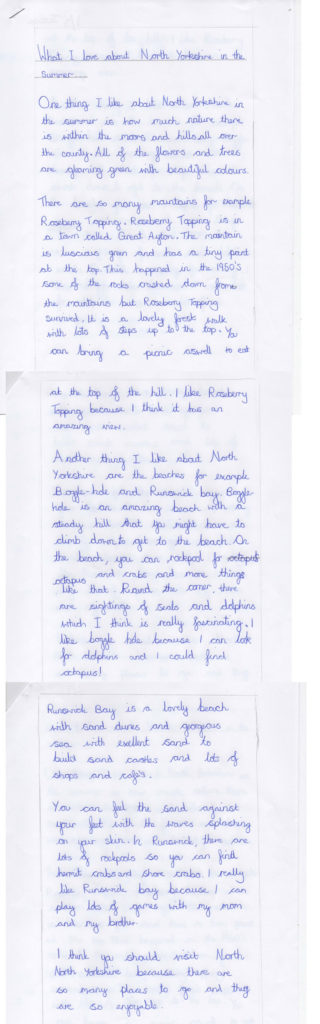 What I love about North Yorkshire in the
Summer
One thing I like about North Yorkshire in
the summer is how much nature there
is within the moors and hills all over
the county. All of the flowers and trees
are gleaming green with beautiful colours.
There are so many mountains for example
Roseberry Topping. Roseberry Topping is in
a town called Great Ayton. The mountain
is luscious green and has a tiny point
at the top. This happened in the 1950's
some of the rocks crushed down from
the mountains but Roseberry Topping
survived. It is a lovely forest walk
with lots of steps up to the top. You
can bring a picnic aswell to eat
at the top of the hill. I like Roseberry
Topping because I think it has an
amazing view.
Another thing I like about North
Yorkshire are the beaches for example
Boggle-hole and Runswick bay. Boggle
hole is an amazing beach with a
steady hill that you might have to
climb down to get to the beach. On
the beach, you can rockpool for
octopus and crabs and more things
like that. Round the corner, there
are sightings of seals and dolphins
which I think is really fascinating. I
like boggle hole because I can look
for dolphins and I could find
octapus!
Runswick Bay is a lovely beach
with sand dunes and gorgeous
sea with exellent sand to
build sand castles and lots of
shops and cafe's.
You can feel the sand against
your feet with the waves splashing
on your skin. In Runswick, there are
lots of rockpools so you can find
hermit crabs and shore crabs. I really
like Runswick bay because I can
play lots of games with my mom
and my brother.
I think you should visit North
North Yorkshire because there are
so many places to go and they
are so enjoyable.